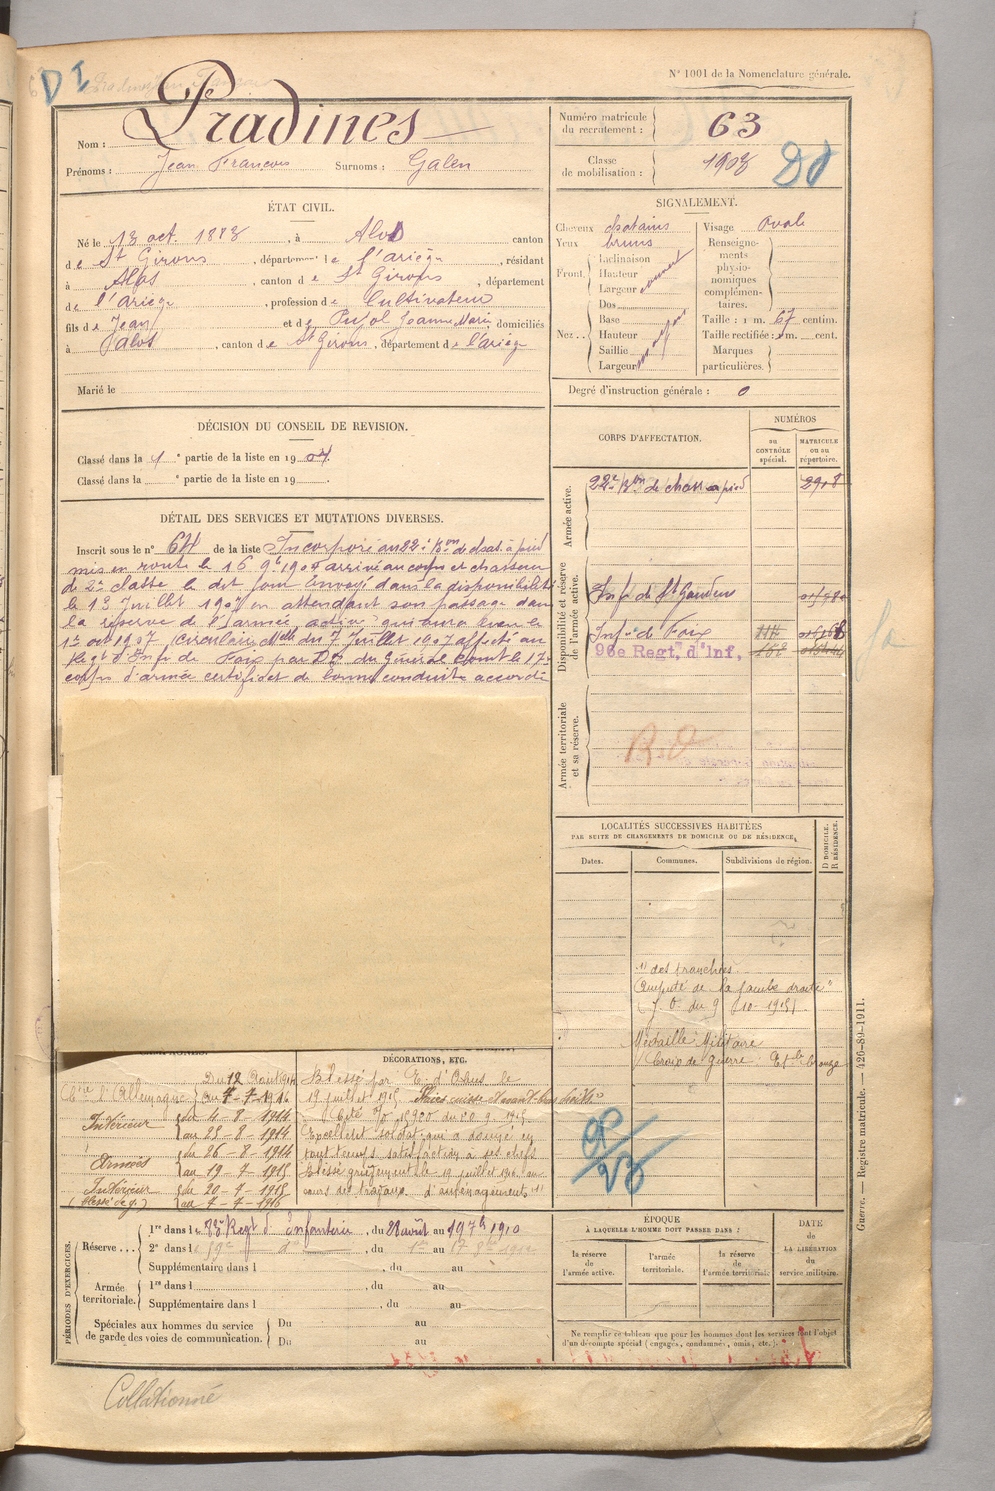 N° 1001 de la Nomenclature générale.
DI
Nom : Pradines
Prénoms : Jean François Surnoms : Galen
Numéro matricule du recrutement : 63
Classe de mobilisation : 1903
ÉTAT CIVIL.
Né le 13 oct. 1883, à Alos canton
de St Girons, département de l'ariège, résidant
à Alos, canton de St Girons, département
de l'ariège, profession de Cultivateur
fils de Jean et de Pujol Jeanne Marie domiciliés
à alos, canton de St Girons, département de l'ariège
Marié le
SIGNALEMENT.
Cheveux chatains
Yeux bruns
Front
Inclinaison
Hauteur
Largeur
couvert
Nez
Dos
Base
Hauteur
Saillie
Largeur
moyen
Visage Ovale
Renseignements physionomiques complémentaires.
Taille : 1 m. 67 centim.
Taille rectifiée : 1 m. cent.
Marques particulières.
Degré d'instruction générale : 0
DÉCISION DU CONSEIL DE REVISION.
Classé dans la 1e partie de la liste en 1904.
Classé dans la e partie de la liste en 19
DÉTAIL DES SERVICES ET MUTATIONS DIVERSES.
Inscrit sous le n° 64 de la liste Incorporé au 22e Bon de chas. à pied
mis en route le 16 9bre 1904 arrivé au corps et chasseur
de 2e classe le dit jour Envoyé dans la disponibilité
le 13 Juillet 1907 en attendant son passage dans
la réserve de l'armée active qui aura lieu le
1er oct 1907 (Circulaire Mlle du 7 Juillet 1907 affecté au
Regt d'Inf de Foix par Don du Général Comt le 17e
corps d'armée certificat de bonne conduite accordé
CORPS D'AFFECTATION.
NUMÉROS
au CONTRÔLE spécial.
MATRICULE ou au répertoire.
Armée active.
22e Bon de chass à pied 2908
Disponibilité et réserve de l'armée active.
Inf de St Gaudens
Infie de Foix
96e Regt, d'Inf,
Armée territoriale et sa réserve.
R.D
LOCALITÉS SUCCESSIVES HABITÉES
PAR SUITE DE CHANGEMENTS DE DOMICILE OU DE RÉSIDENCE.
Dates.
Communes.
Subdivisions de région.
D DOMICILE. R RÉSIDENCE.
des tranchées.
Amputé de la jambe droite"
(J. O. du 9 10-1915)
Médaille Militaire
Croix de Guerre Etle bronze
CAMPAGNES.
Du 12 Août 1914
Ctre l'Allemagne au 7-7-1916
Intérieur du 4-8-1914
au 25-8-1914
Armées du 26-8-1914
au 19-7-1915
Intérieur du 20-7-1915
(blessé de g.) au 7-7-1916
DÉCORATIONS, ETC.
Blessé par E. d'Obus le
19 juillet 1915
Cité 15920 du 20.9.1915
Excellent soldat qui a donné en
tout temps satisfaction à ses chefs
blessé grièvement le 19 juillet 1915 au
cours des travaux d'aménagements
PÉRIODES D'EXERCICES.
Réserve
1re dans le Regt d'Infanterie, du 28 août au 19 7bre 1910
2e dans le 59e do, du 1er au 17
Supplémentaire dans l , du au
Armée territoriale.
1re dans l , du au
Supplémentaire dans l , du au
Spéciales aux hommes du service de garde des voies de communication.
Du au
Du au
ÉPOQUE
À LAQUELLE L'HOMME DOIT PASSER DANS :
la réserve de l'armée active.
l'armée territoriale.
la réserve de l'armée territoriale
DATE DE LA LIBÉRATION du service militaire.
Ne remplir ce tableau que pour les hommes dont les services font l'objet
d'un décompte spécial (engagés, condamnés, omis, etc.).
Guerre. — Registre matricule. — 426-89-1911.
Collationné